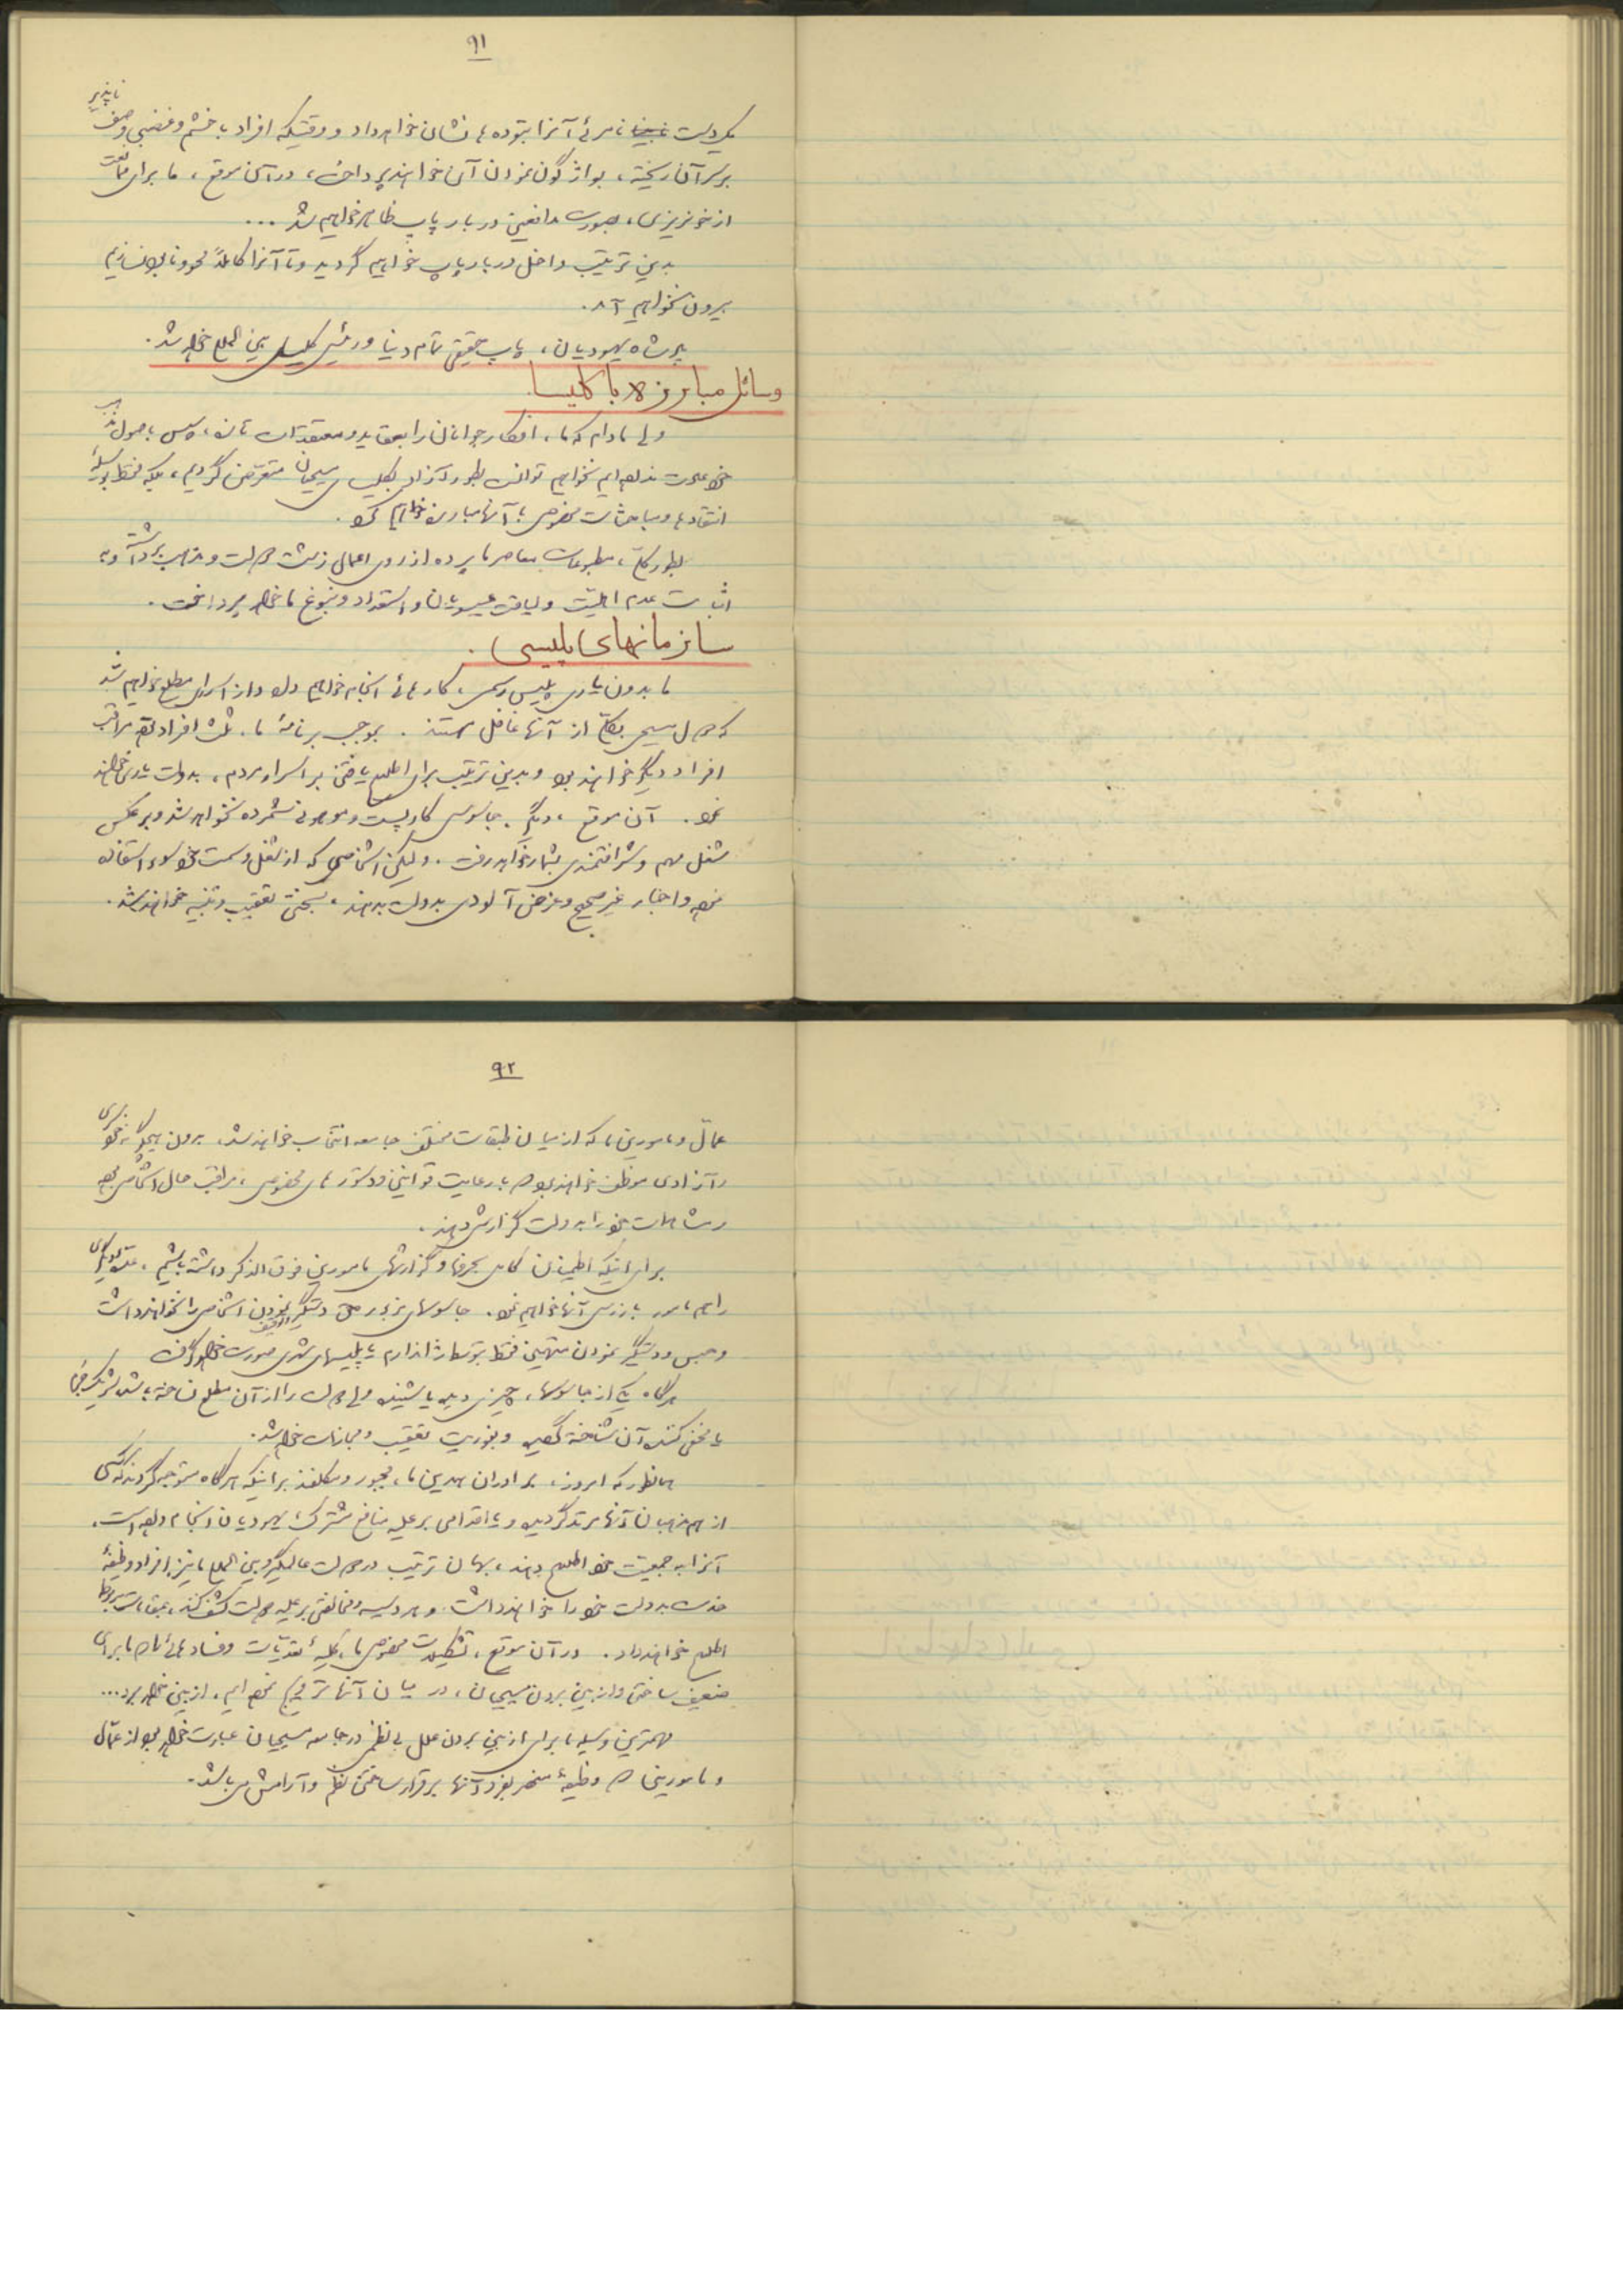 ۹۱
یکدست نامرئی آنرا بتوده ها نشان خواهد داد و وقتیکه افراد با خشم و غضبی وصف ناپذیر
بر سر آن ریخته، بواژگون نمودن آن خواهند پرداخت، در آن موقع، ما برای ممانعت
از خونریزی، بصورت مدافعین دربار پاپ ظاهر خواهیم شد ...
بدین ترتیب داخل دربار پاپ خواهیم گردید و تا آنرا کاملاً محو و نابود نسازیم
بیرون نخواهیم آمد.
پادشاه یهودیان، پاپ حقیقی تمام دنیا و رئیس کلیسای بین المللی خواهد شد.
وسائل مبارزه با کلیسا.
ولی مادام که ما، افکار جوانان را بعقاید و معتقدات تازه، سپس باصول مذهبی
خود عادت نداده ایم نخواهیم توانست بطور آزاد بکلیسای مسیحیان متعرض گردیم، بلکه فقط بوسیلهٔ
انتقادها و مباحثات مخصوص با آنها مبارزه خواهیم کرد.
بطور کلی، مطبوعات معاصر ما پرده از روی اعمال زشت دولت و مذاهب برداشته و به
اثبات عدم اهلیت و لیاقت عیسویان و استعداد و نبوغ ما خواهد پرداخت.
سازمانهای پلیسی.
ما بدون یاری پلیس رسمی، کارهائی انجام خواهیم داد و از اسراری مطلع خواهیم شد
که دول مسیحی بکلی از آنها غافل هستند. بموجب برنامهٔ ما، ثلث افراد مراقب
افراد دیگر خواهند بود و بدین ترتیب برای اطلاع یافتن بر اسرار مردم، بدولت یاری خواهند
نمود. آن موقع، دیگر، جاسوسی کار پست و موهونی شمرده نخواهد شد و برعکس
شغل مهم و شرافتمندی بشمار خواهد رفت. ولیکن اشخاصی که از شغل و سمت خود سوء استفاده
نموده و اخبار غیر صحیح و غرض آلودی بدولت بدهند، بسختی تعقیب و تنبیه خواهند شد.
۹۲
عمال و مامورین ما که از میان طبقات مختلف جامعه انتخاب خواهند شد، بدون هیچگونه خودسری
و آزادی موظف خواهند بود که با رعایت قوانین و دستورهای مخصوص، مراقب حال اشخاص بوده
و مشاهدات خود را بدولت گزارش دهند.
برای اینکه اطمینان کامل بحرفها و گزارشهای مامورین فوق الذکر داشته باشیم، عدهٔ دیگری
را هم مامور بازرسی آنها خواهیم نمود. جاسوسهای مزبور حق دستگیر و توقیف نمودن اشخاص را نخواهند داشت
و حبس و دستگیر نمودن متهمین فقط بتوسط ژاندارم یا پلیسهای شهری صورت خواهد گرفت
هرگاه یکی از جاسوسها، چیزی دیده یا شنیده ولی دولت را از آن مطلع نساخته باشد شریک جنایت
یا مخفی کننده آن شناخته گردیده و بفوریت تعقیب و مجازات خواهد شد.
همانطور که امروز، برادران همدین ما، مجبور و مکلفند براینکه هرگاه متوجه گردند که کسی
از هم مذهبان آنها مرتد گردیده و یا اقدامی بر علیه منافع مشترک یهودیان انجام داده است.
آنرا به جمعیت خود اطلاع دهند، بهمان ترتیب در دولت عالمگیر و بین المللی ما نیز افراد وظیفهٔ
خدمت بدولت خود را خواهند داشت و هر دسیسه و مخالفتی بر علیه دولت کشف کنند، بمقامات مربوطه
اطلاع خواهند داد. در آن موقع، تشکیلات مخصوص ما، کلیهٔ تعدیات و فسادهائی را که ما برای
ضعیف ساختن و از بین بردن مسیحیان، در میان آنها ترویج نموده ایم، از بین خواهد برد...
مهمترین وسیله ما برای از بین بردن علل بی نظمی در جامعه مسیحیان عبارت خواهد بود از عمال
و مامورینی که وظیفهٔ منحصر بفرد آنها برقرار ساختن نظم و آرامش میباشد.